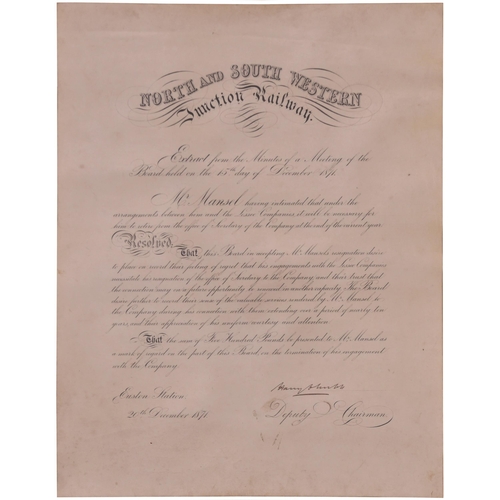 NORTH AND SOUTH WESTERN
Junction Railway.
Extract from the Minutes of a Meeting of the
Board held on the 15th day of December 1871
Mr. Mansel having intimated that under the
arrangements between him and the Companies, it will be necessary for
him to retire from the office of Secretary of the Company at the end of the current year
Resolved, That this Board in accepting Mr. Mansel's resignation desire
to place on record their feeling of regret that his engagements with the Companies
necessitate his resignation of the office of Secretary to the Company, and their trust that
the connection may on a future opportunity be renewed in another capacity. The Board
desire further to record their sense of the valuable services rendered by Mr. Mansel to
the Company during his connection with them extending over a period of nearly ten
years, and their appreciation of his uniform courtesy and attention.
That the sum of Five Hundred Pounds be presented to Mr. Mansel as
a mark of regard on the part of this Board on the termination of his engagement
with the Company.
Euston Station
20th December 1871
Deputy Chairman